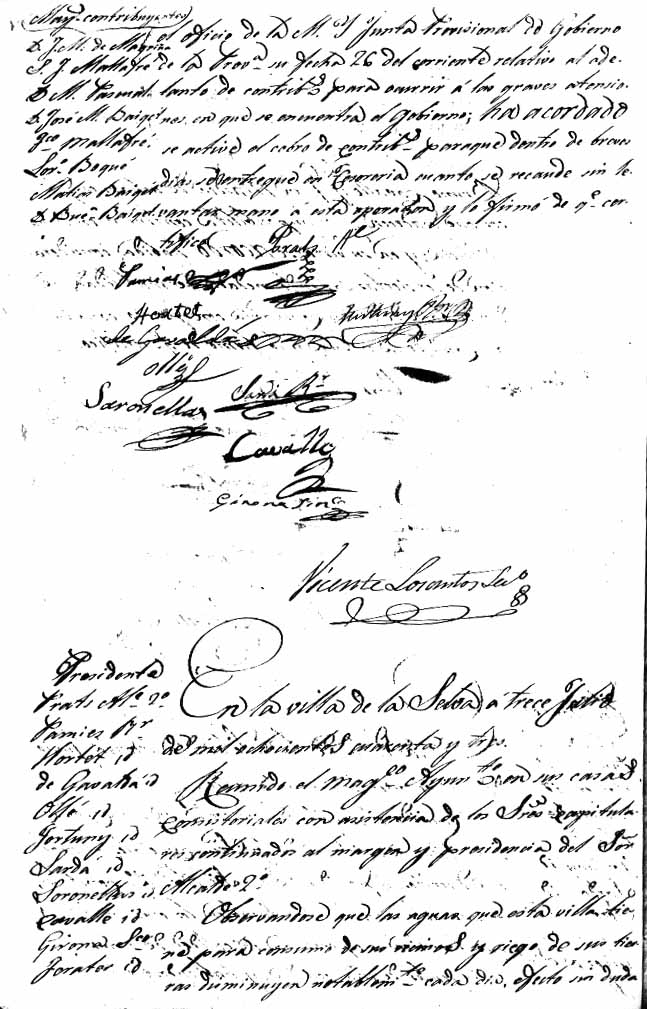 May.s contribuyentes
D. J. M. de Magriña
S. J. Mallafré
D. M. Pascual
D. José M. Baiget
Fco Mallafré
Lor.o Boqué
Matias Baiget
D. Bue.a Baiget
el oficio de la M. Y Junta Provisional de Gobierno
de la Prov.a su fecha 26 del corriente relativo al ade-
lanto de contrib.s para ocurrir á las graves atencio-
nes en que se encuentra el Gobierno; ha acordado
se active el cobro de contrib.s para que dentro de breves
dias se entregue en Tesoreria cuanto se recaude sin le-
vantar mano á esta operacion y lo firmó de q.e cer-
tifico
Prats
Pamies
Hortet
de Gavaldá
Ollé
Sardá R.r
Soronellas
Cavallé
Girona Sin.co
Vicente Losantos Sec.o
Presidente
Prats Al.e 2.o
Pamies R.r
Hortet id
de Gavaldá id
Ollé id
Fortuny id
Sardá id
Soronellas id
Cavallé id
Girona
id
En la villa de la Selva, a trece Julio
de mil ochocientos cuarenta y tres.
Reunido el mag.co Ayunt.to en sus casas
consistoriales con asistencia de los Sres capitula-
res continuados al margen y presidencia del Sor
Alcalde 2.o
Observandose que las aguas que esta villa tie-
ne para consumo de sus vecinos y riego de sus tier-
ras disminuyen notablem.te cada dia, efecto sin duda